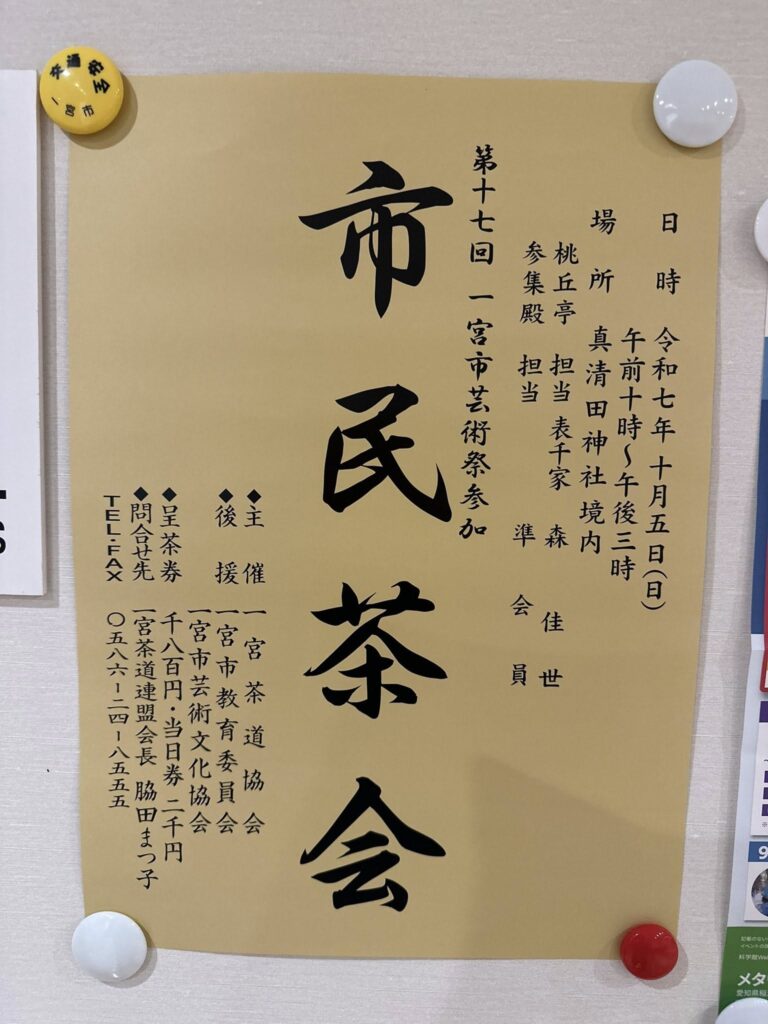 日時 令和七年十月五日(日)
午前十時~午後三時
場所 真清田神社境内
桃丘亭 担当 表千家 森 佳世
参集殿 担当 準会員
第十七回 一宮市芸術祭参加
市民茶会
◆主催 一宮茶道協会
◆後援 一宮市教育委員会
一宮市芸術文化協会
◆呈茶券 千八百円・当日券 二千円
◆問合せ先 一宮茶道連盟会長 脇田まつ子
TEL・FAX 〇五八六ー二四ー八五五五
一宮市
メタ